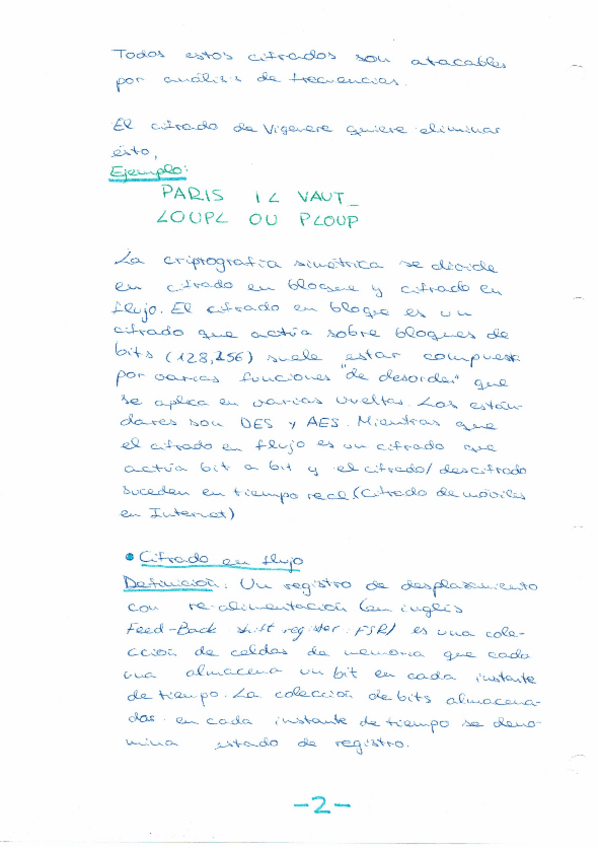 Todos estos cifrados son atacables
por análisis de frecuencias.
El cifrado de Vigenere quiere eliminar
ésto,
Ejemplo:
PARIS IL VAUT_
LOUPL OU PLOUP
La criprografía simétrica se divide
en cifrado en bloque y cifrado en
flujo. El cifrado en bloque es un
cifrado que actúa sobre bloques de
bits (128,256) suele estar compuest
por varias funciones "de desorden" que
se aplica en varias vueltas. Los están-
dares son DES y AES. Mientras que
el cifrado en flujo es un cifrado que
actúa bit a bit y el cifrado/descifrado
suceden en tiempo real (Cifrado de móviles
en Internet)
• Cifrado en flujo
Definición: Un registro de desplazamiento
con re-alimentación (en inglés
Feed-Back shift register: FSR) es una cole-
cción de celdas de memoria que cada
una almacena un bit en cada instante
de tiempo. La colección de bits almacena-
dos en cada instante de tiempo se deno-
mina estado de registro.
-2-